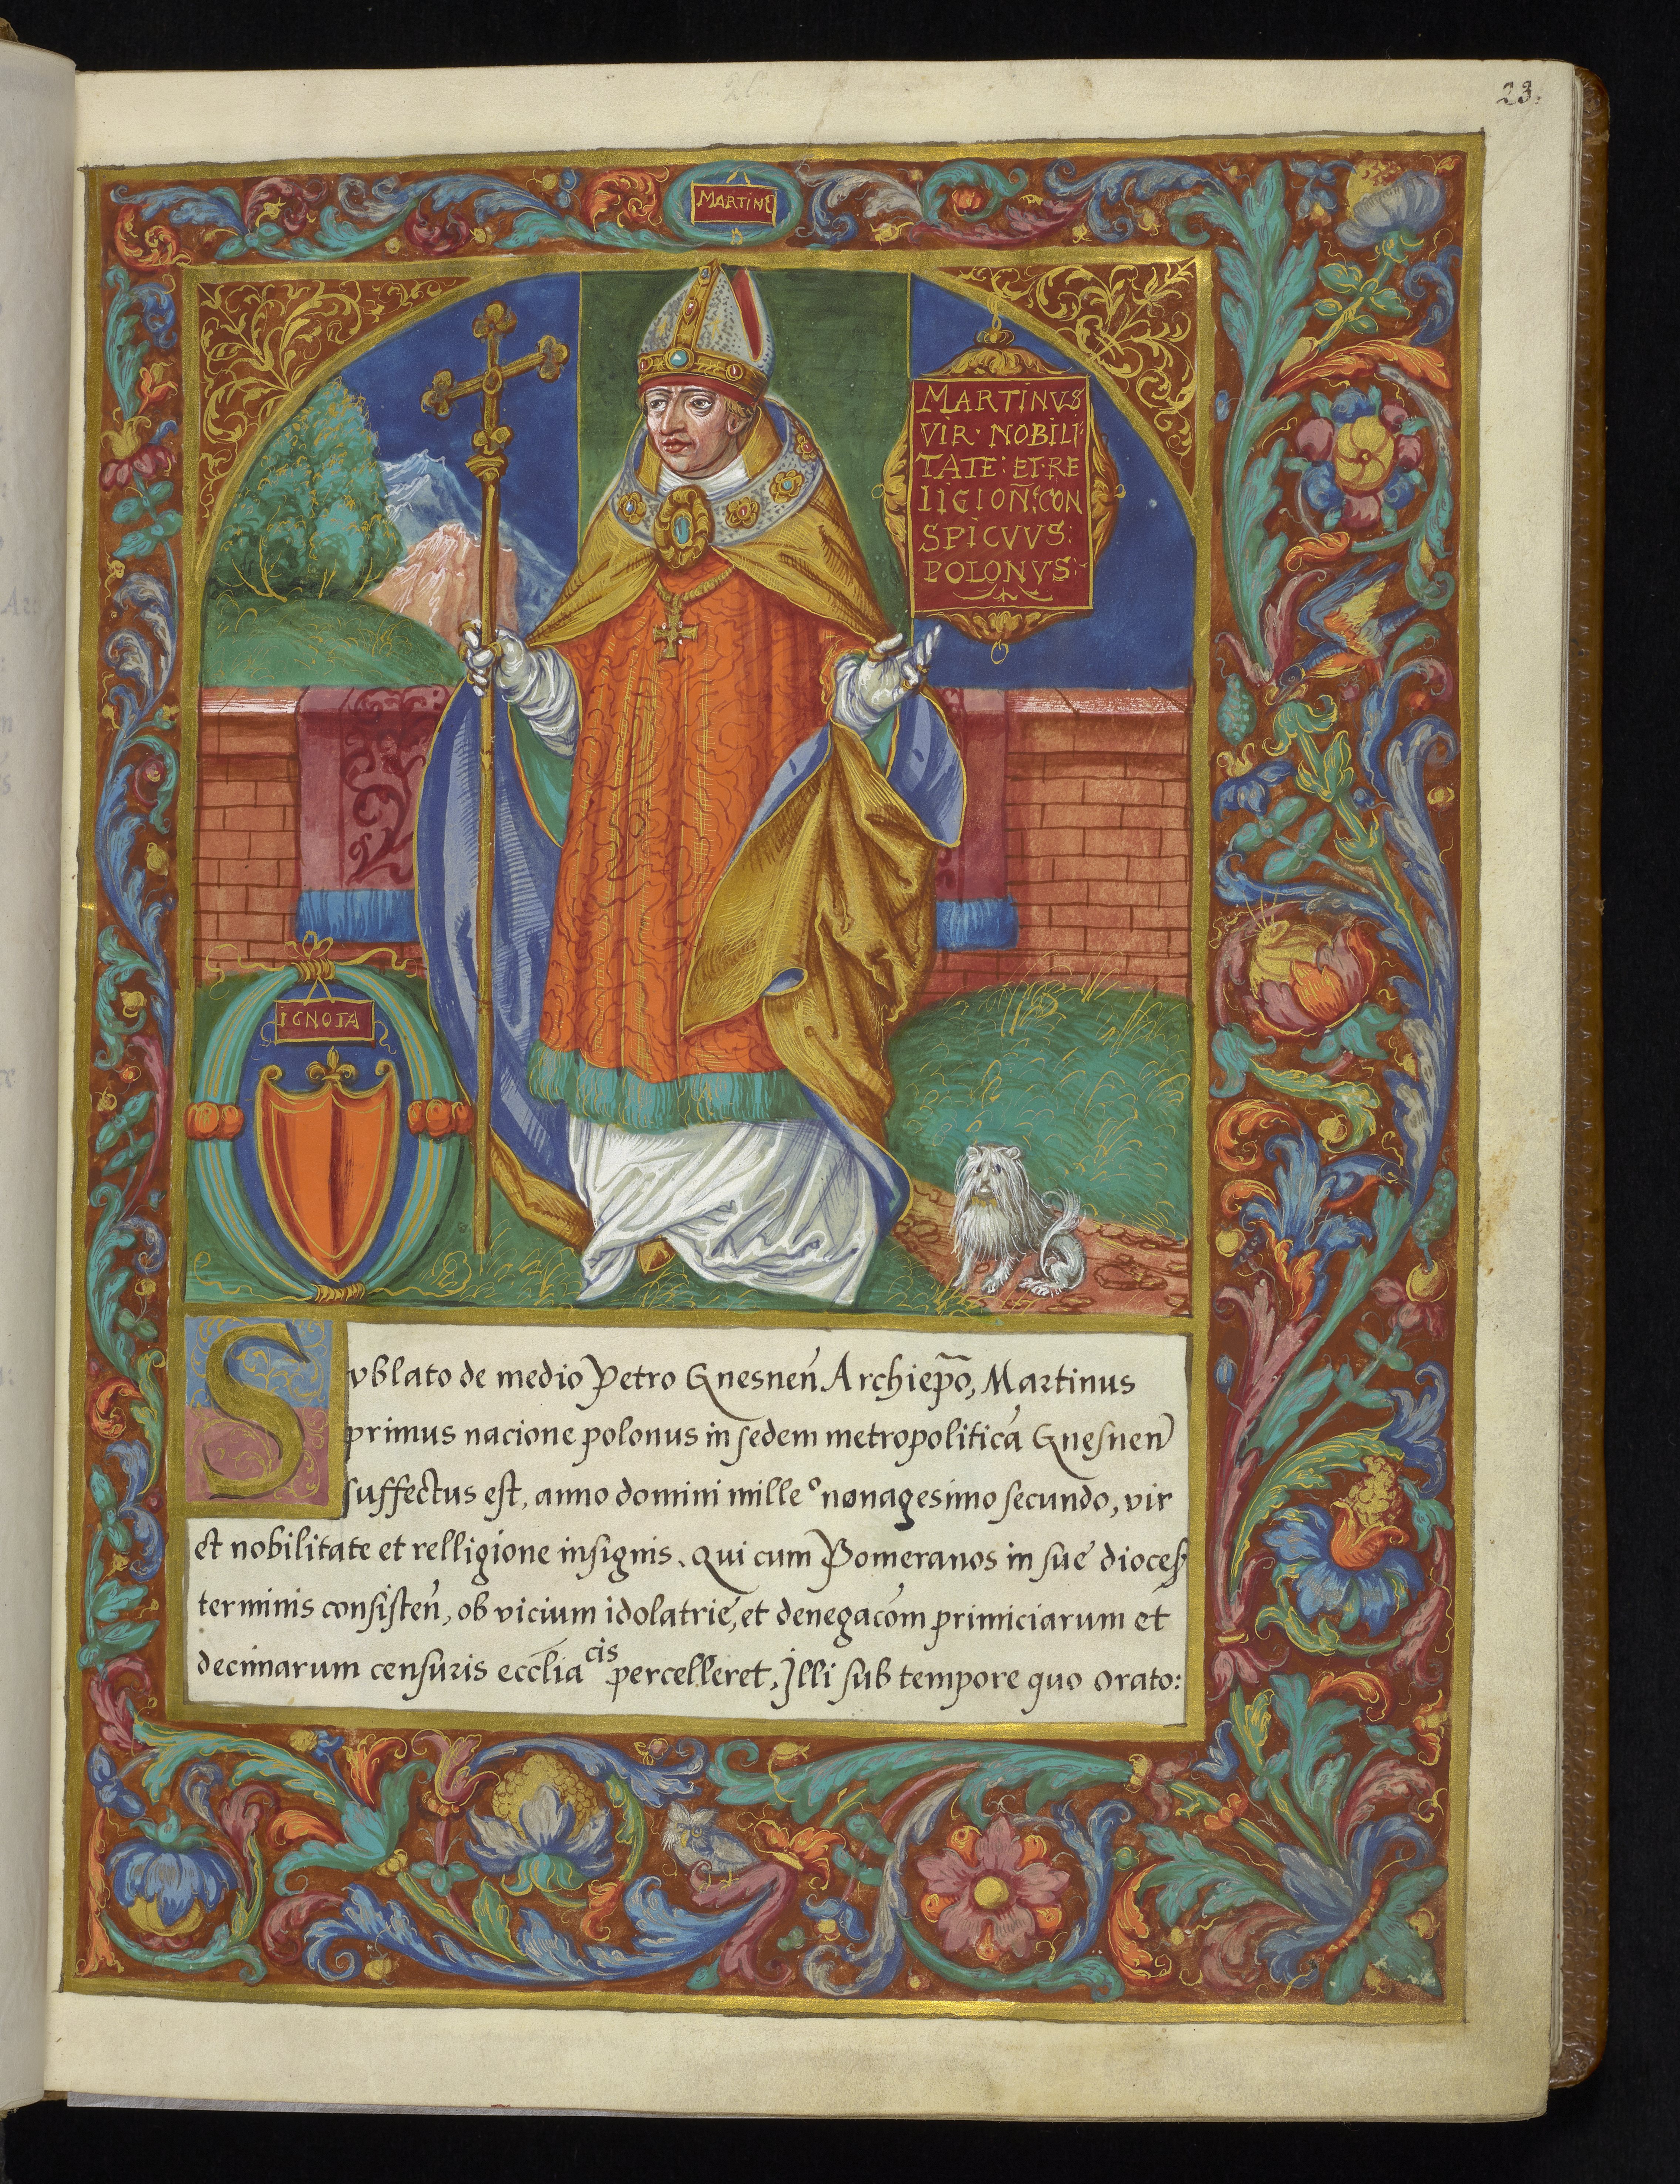 23.
MARTINE
MARTINVS
VIR· NOBILI·
TATE: ET·RE
LIGION: CON
SPICVVS:
POLONVS:
IGNOTA
Svblato de medio Petro Gnesneń Archiep̄o, Martinus
primus nacione polonus in sedem metropoliticā Gnesneń
suffectus est, anno domini mille⁰ nonagesimo secundo, vir
et nobilitate et relligione insignis. Qui cum Pomeranos in sue dioces
terminis consisteń, ob vicium idolatrie, et denegacōm primiciarum et
decimarum censuris ecclīacis percelleret, Illi sub tempore quo orato: